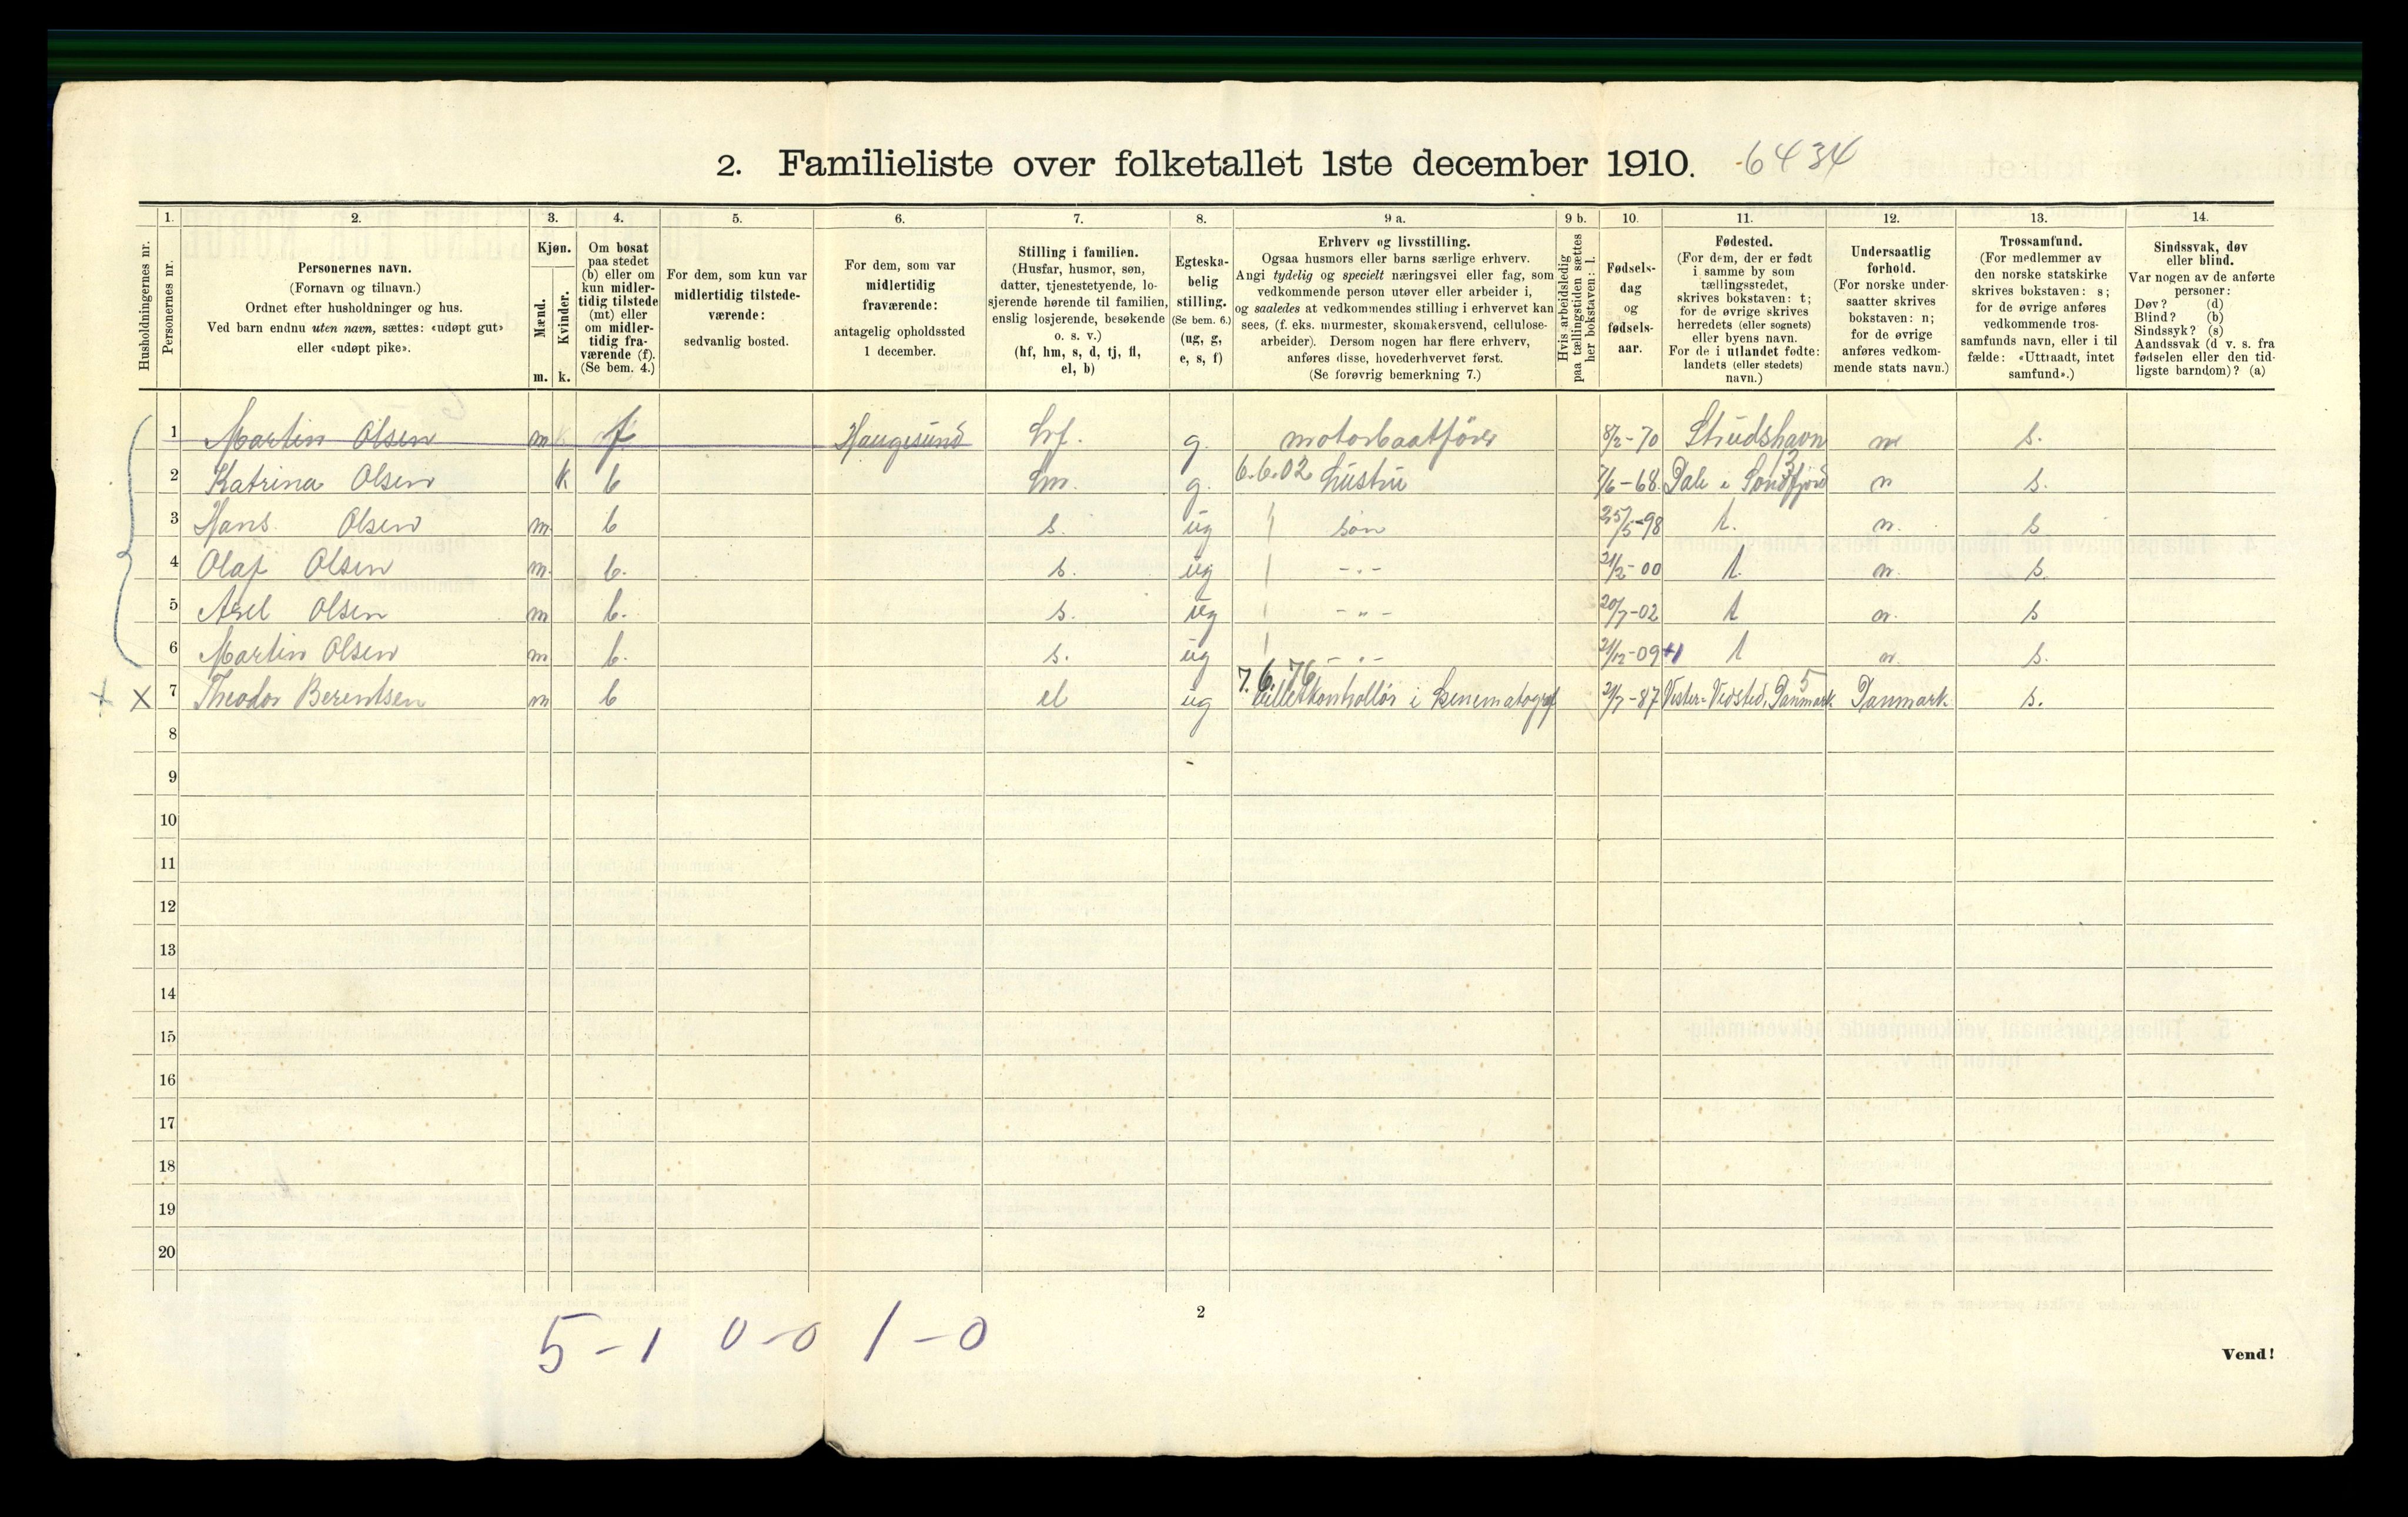 2. Familieliste over folketallet 1ste december 1910. 6434
Husholdningernes nr.
1.
Personernes nr.
2.
Personernes navn.
(Fornavn og tilnavn.)
Ordnet efter husholdninger og hus.
Ved barn endnu uten navn, sættes: «udøpt gut»
eller «udøpt pike».
3.
Kjøn.
Mænd.
m.
Kvinder.
k.
4.
Om bosat
paa stedet
(b) eller om
kun midler-
tidig tilstede
(mt) eller
om midler-
tidig fra-
værende (f).
(Se bem. 4.)
5.
For dem, som kun var
midlertidig tilstede-
værende:
sedvanlig bosted.
6.
For dem, som var
midlertidig
fraværende:
antagelig opholdssted
1 december.
7.
Stilling i familien.
(Husfar, husmor, søn,
datter, tjenestetyende, lo-
sjerende hørende til familien,
enslig losjerende, besøkende
o. s. v.)
(hf, hm, s, d, tj, fl,
el, b)
8.
Egteska-
belig
stilling.
(Se bem. 6.)
(ug, g,
e, s, f)
9 a.
Erhverv og livsstilling.
Ogsaa husmors eller barns særlige erhverv.
Angi tydelig og specielt næringsvei eller fag, som
vedkommende person utøver eller arbeider i,
og saaledes at vedkommendes stilling i erhvervet kan
sees, (f. eks. murmester, skomakersvend, cellulose-
arbeider). Dersom nogen har flere erhverv,
anføres disse, hovederhvervet først.
(Se forøvrig bemerkning 7.)
9 b.
Hvis arbeidsledig
paa tællingstiden sættes
her bokstaven: l.
10.
Fødsels-
dag
og
fødsels-
aar.
11.
Fødested.
(For dem, der er født
i samme by som
tællingsstedet,
skrives bokstaven: t;
for de øvrige skrives
herredets (eller sognets)
eller byens navn.
For de i utlandet fødte:
landets (eller stedets)
navn.)
12.
Undersaatlig
forhold.
(For norske under-
saatter skrives
bokstaven: n;
for de øvrige
anføres vedkom-
mende stats navn.)
13.
Trossamfund.
(For medlemmer av
den norske statskirke
skrives bokstaven: s;
for de øvrige anføres
vedkommende tros-
samfunds navn, eller i til
fælde: «Uttraadt, intet
samfund».)
14.
Sindssvak, døv
eller blind.
Var nogen av de anførte
personer:
Døv? (d)
Blind? (b)
Sindssyk? (s)
Aandssvak (d v. s. fra
fødselen eller den tid-
ligste barndom)? (a)
1 Martin Olsen m f Haugesund hf. g. motorbaatfører 8/2-70 Strudshavn n s.
2 Katrina Olsen k b hm. g. 6.6.02 hustru 7/6-68 Dale i Søndfjord 3 n s.
3 Hans Olsen m b s. ug søn 25/5-98 t. n. s
4 Olaf Olsen m. b. s. ug -"- 21/2-00 t. n. s.
5 Axel Olsen m b. s. ug -"- 20/7-02 t n. s
6 Martin Olsen m b. s. ug -"- 21/12-09 +1 t n. s.
X X 7 Theodor Berentsen m b el ug 7.6.76 billetkontrollør i kinematograf 21/7-87 Vester-Vedsted, Danmark 5 Danmark s.
8
9
10
11
12
13
14
15
16
17
18
19
20
5-1 0-0 1-0
2
Vend!